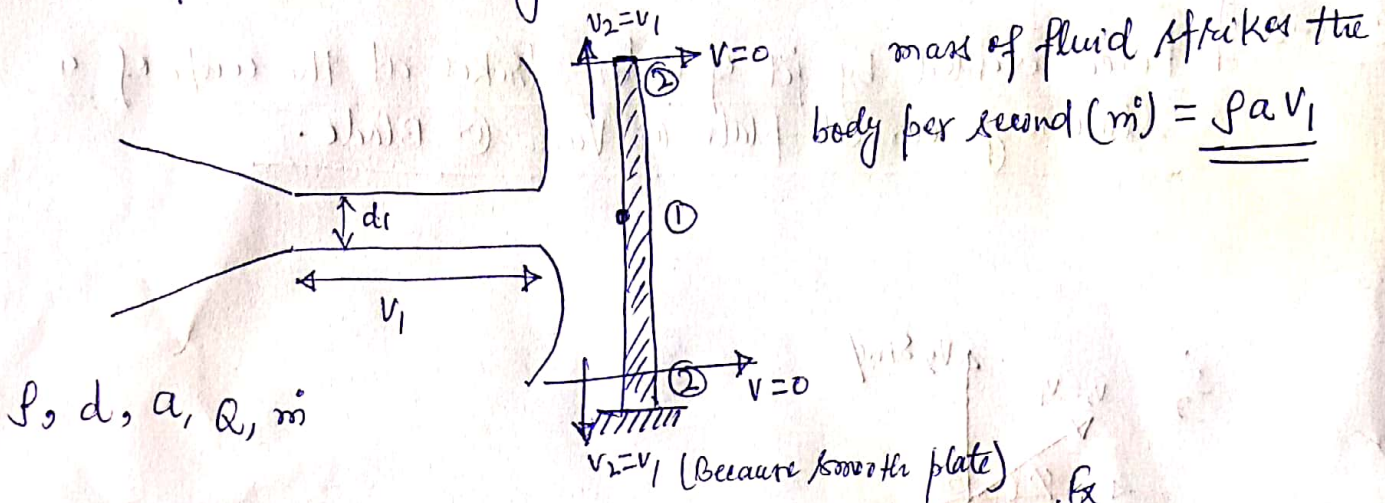 V₂=V₁
V=0
②
mass of fluid strikes the
body per second (ṁ) = ρaV₁
d₁
①
V₁
②
V=0
ρ, d, a, Q, ṁ
V₂=V₁ (Because smooth plate)
Fx